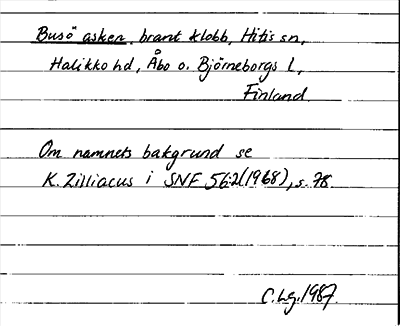 Busö asken, brant klobb, Hitis sn,
Halikko hd, Åbo o. Björneborgs l,
Finland.
Om namnets bakgrund se
K. Zilliacus i SNF 56:2(1968), s. 78.
C. Lg. 1987.